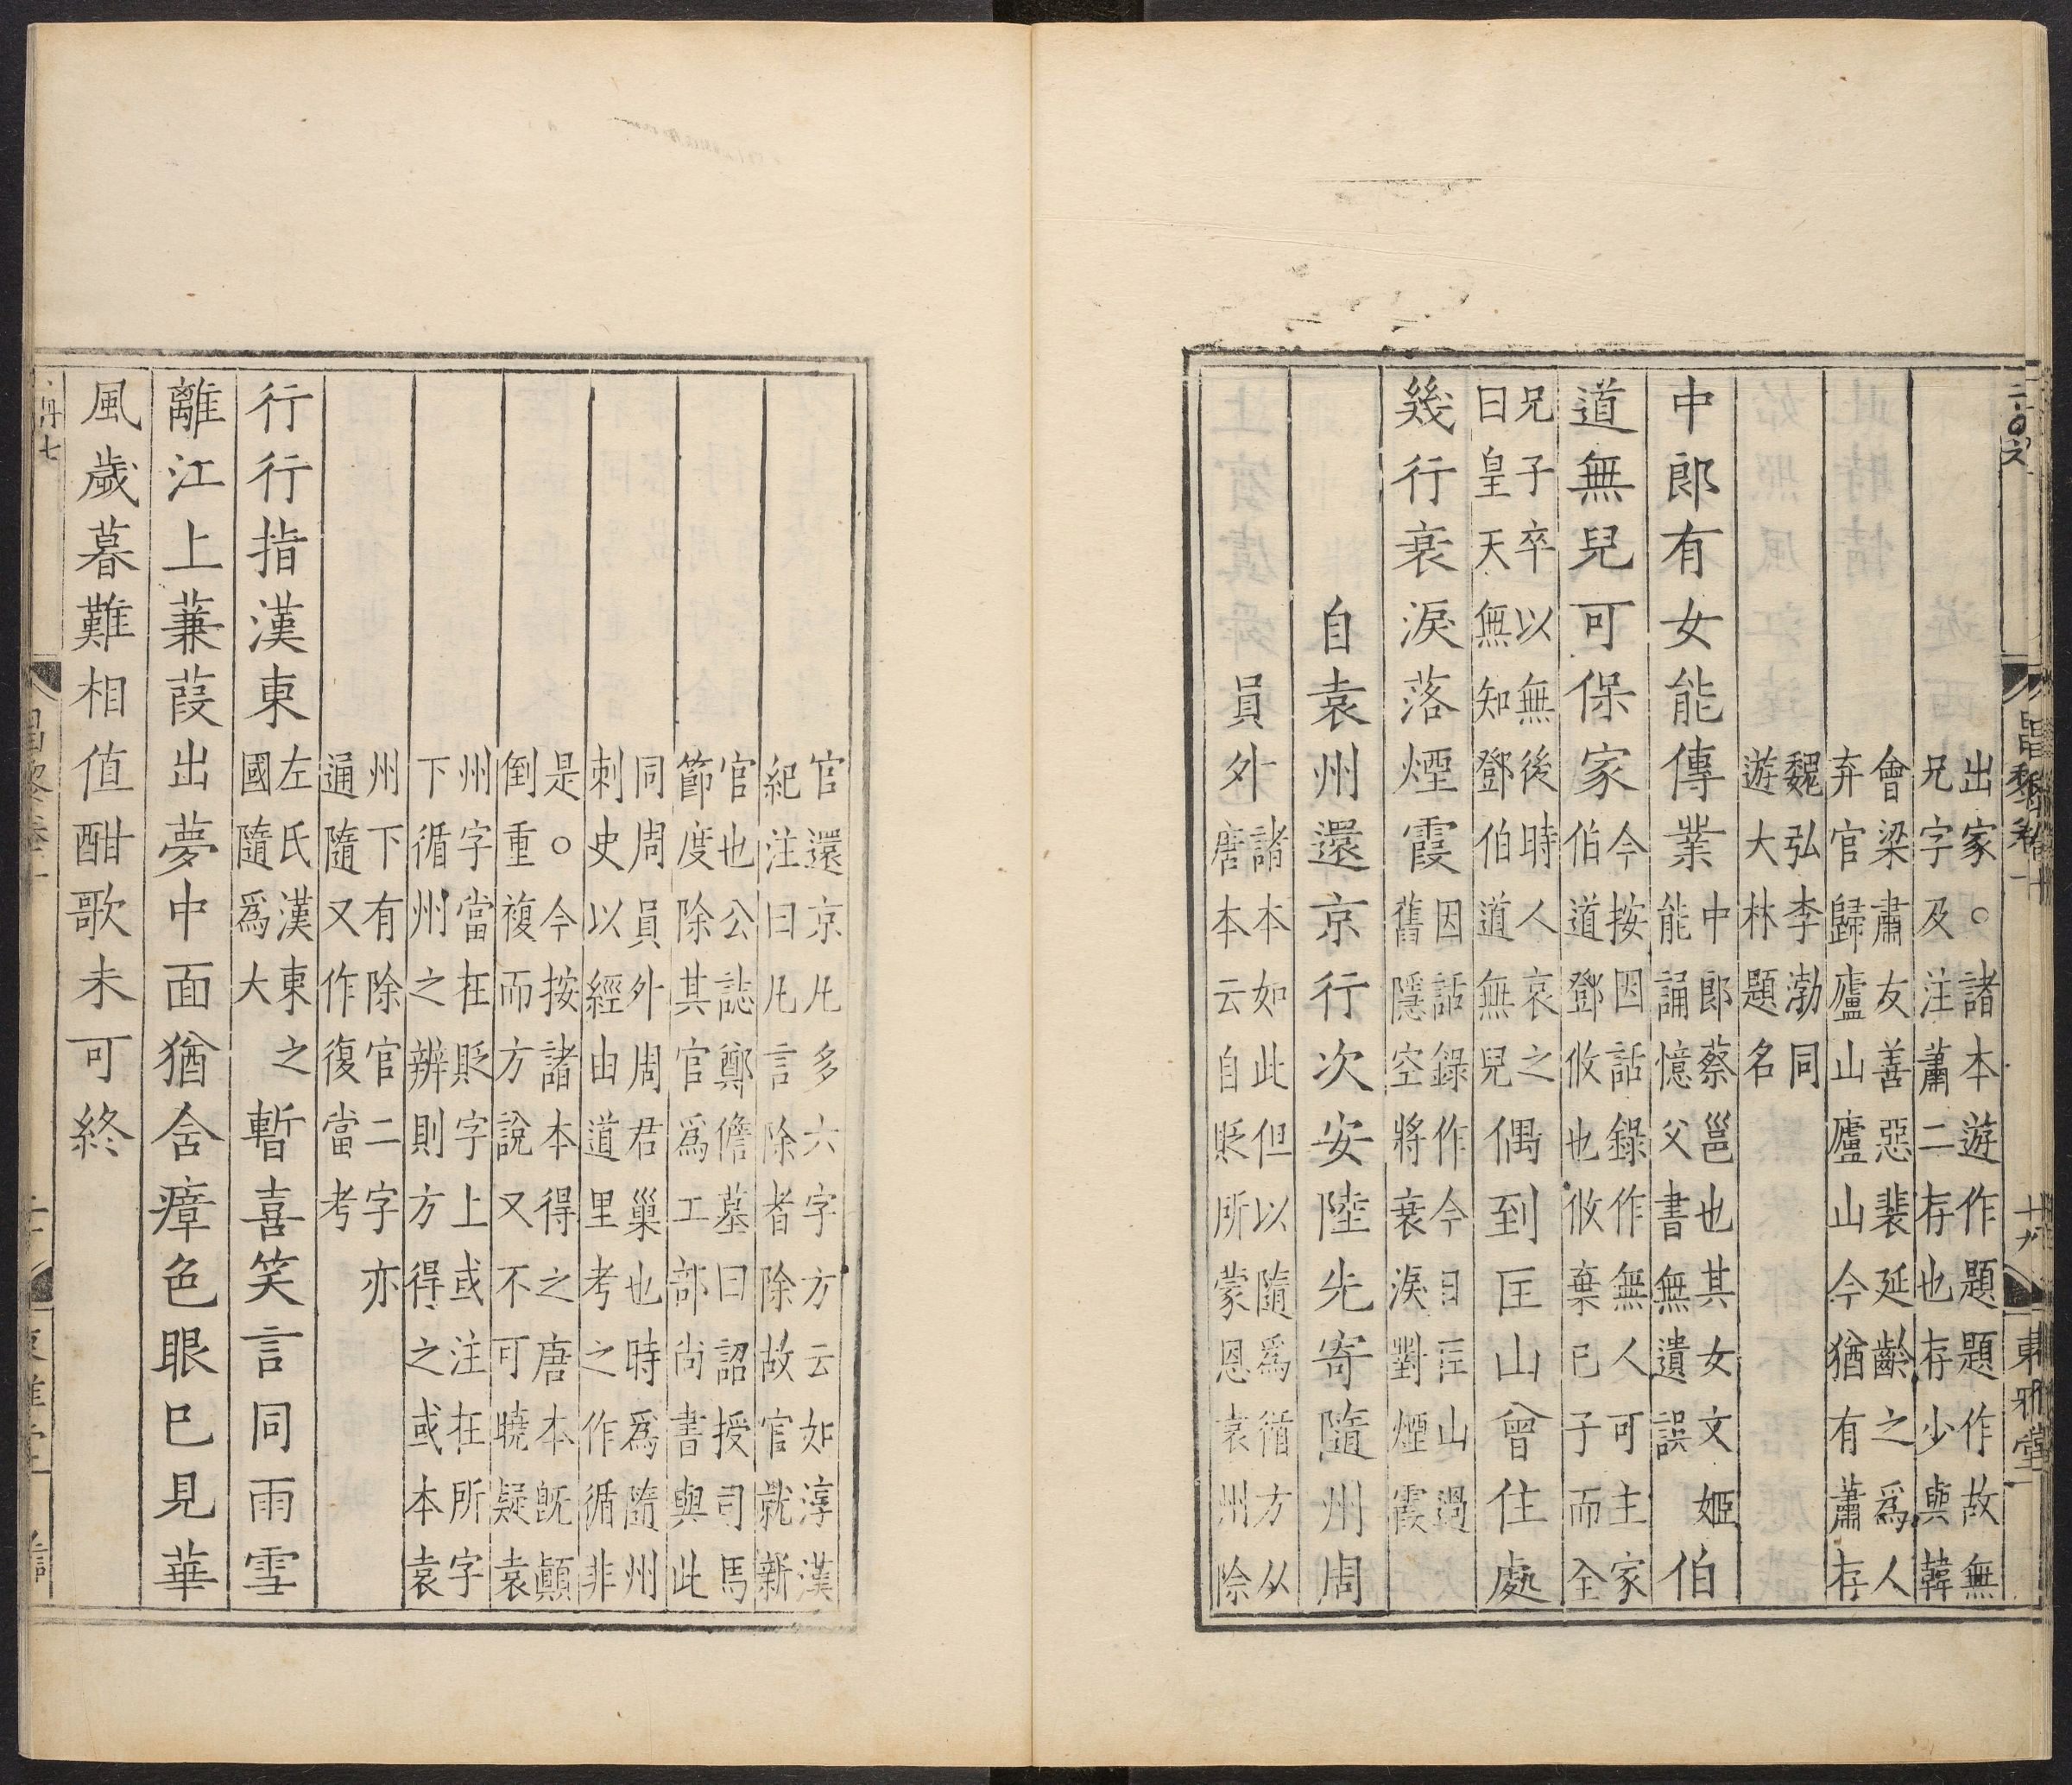 出家○諸本遊作題題作故無
兄字及注蕭二存也存少與韓
會梁肅友善惡裴延齡之爲人
弃官歸廬山廬山今猶有蕭存
魏弘李渤同
遊大林題名
中郎有女能傳業
中郎蔡邕也其女文姬
能誦憶父書無遺誤
伯
道無兒可保家
今按因話錄作無人可主家
伯道鄧攸也攸棄已子而全
兄子卒以無後時人哀之
曰皇天無知鄧伯道無兒
偶到匡山曾住處
幾行衰淚落煙霞
因話錄作今日匡山過
舊隱空將衰淚對煙霞
自袁州還京行次安陸先寄隨州周
員外
諸本如此但以隨爲循方从
唐本云自貶所蒙恩袁州除
昌黎卷十
十九
東雅堂
官還京凡多六字方云如淳漢
紀注曰凡言除者除故官就新
官也公誌鄭儋墓曰詔授司馬
節度除其官爲工部尚書與此
同周員外周君巢也時爲隨州
刺史以經由道里考之作循非
是○今按諸本得之唐本既顛
倒重複而方說又不可曉疑袁
州字當在貶字上或注在所字
下循州之辨則方得之或本袁
州下有除官二字亦
通隨又作復當考
行行指漢東
左氏漢東之
國隨爲大
暫喜笑言同雨雪
離江上蒹葭出夢中面猶含瘴色眼巳見華
風歲暮難相值酣歌未可終